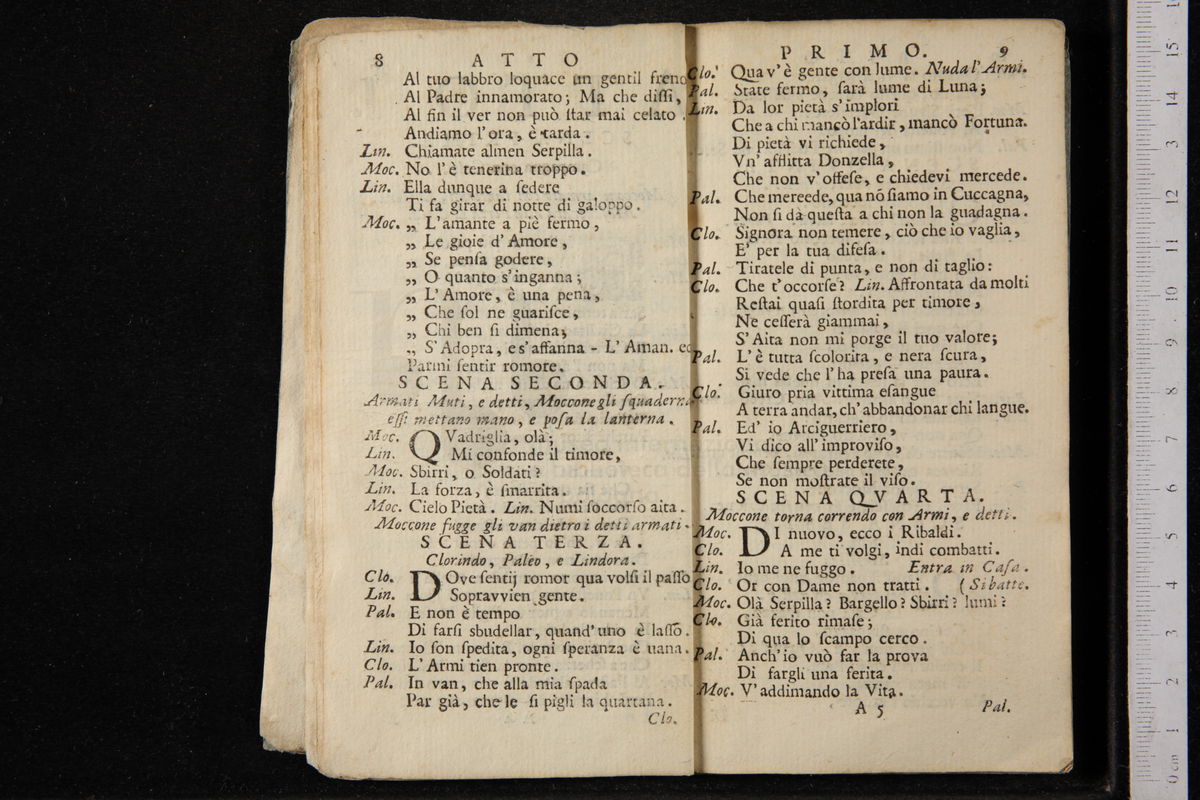 8 ATTO
Al tuo labbro loquace un gentil freno
Al Padre innamorato; Ma che diſſi,
Al fin il ver non può ſtar mai celato.
Andiamo l'ora, è tarda.
Lin. Chiamate almen Serpilla.
Moc. No l'è tenerina troppo.
Lin. Ella dunque a ſedere
Ti fa girar di notte di galoppo.
Moc. „ L'amante a piè fermo,
„ Le gioie d'Amore,
„ Se penſa godere,
„ O quanto s'inganna;
„ L'Amore, è una pena,
„ Che ſol ne guariſce,
„ Chi ben ſi dimena;
„ S'Adopra, e s'affanna - L'Aman. ec
Parmi ſentir romore.
SCENA SECONDA.
Armati Muti, e detti, Moccone gli ſquaderna
eſſi mettano mano, e poſa la lanterna.
Moc. QVadriglia, olà;
Lin. Mi confonde il timore,
Moc. Sbirri, o Soldati?
Lin. La forza, è ſmarrita.
Moc. Cielo Pietà. Lin. Numi ſoccorſo aita.
Moccone fugge gli van dietro i detti armati.
SCENA TERZA.
Clorindo, Paleo, e Lindora.
Clo. DOve ſentij romor qua volſi il paſſo
Lin. Sopravvien gente.
Pal. E non è tempo
Di farſi sbudellar, quand'uno è laſſo.
Lin. Io ſon ſpedita, ogni ſperanza è uana.
Clo. L'Armi tien pronte.
Pal. In van, che alla mia ſpada
Par già, che le ſi pigli la quartana.
Clo.
PRIMO. 9
Clo. Qua v'è gente con lume. Nuda l'Armi.
Pal. State fermo, ſarà lume di Luna;
Lin. Da lor pietà s'implori
Che a chi mancò l'ardir, mancò Fortuna.
Di pietà vi richiede,
Vn'afflitta Donzella,
Che non v'offeſe, e chiedevi mercede.
Pal. Che mereede, qua nō ſiamo in Cuccagna,
Non ſi dà queſta a chi non la guadagna.
Clo. Signora non temere, ciò che io vaglia,
E' per la tua difeſa.
Pal. Tiratele di punta, e non di taglio:
Clo. Che t'occorſe? Lin. Affrontata da molti
Reſtai quaſi ſtordita per timore,
Ne ceſſerà giammai,
S'Aita non mi porge il tuo valore;
Pal. L'è tutta ſcolorita, e nera ſcura,
Si vede che l'ha preſa una paura.
Clo. Giuro pria vittima eſangue
A terra andar, ch'abbandonar chi langue.
Pal. Ed' io Arciguerriero,
Vi dico all'improviſo,
Che ſempre perderete,
Se non moſtrate il viſo.
SCENA QVARTA.
Moccone torna correndo con Armi, e detti.
Moc. DI nuovo, ecco i Ribaldi.
Clo. A me ti volgi, indi combatti.
Lin. Io me ne fuggo. Entra in Caſa.
Clo. Or con Dame non tratti. (Si batte.
Moc. Olà Serpilla? Bargello? Sbirri? lumi?
Clo. Già ferito rimaſe;
Di qua lo ſcampo cerco.
Pal. Anch'io vuò far la prova
Di fargli una ferita.
Moc. V'addimando la Vita.
A 5 Pal.